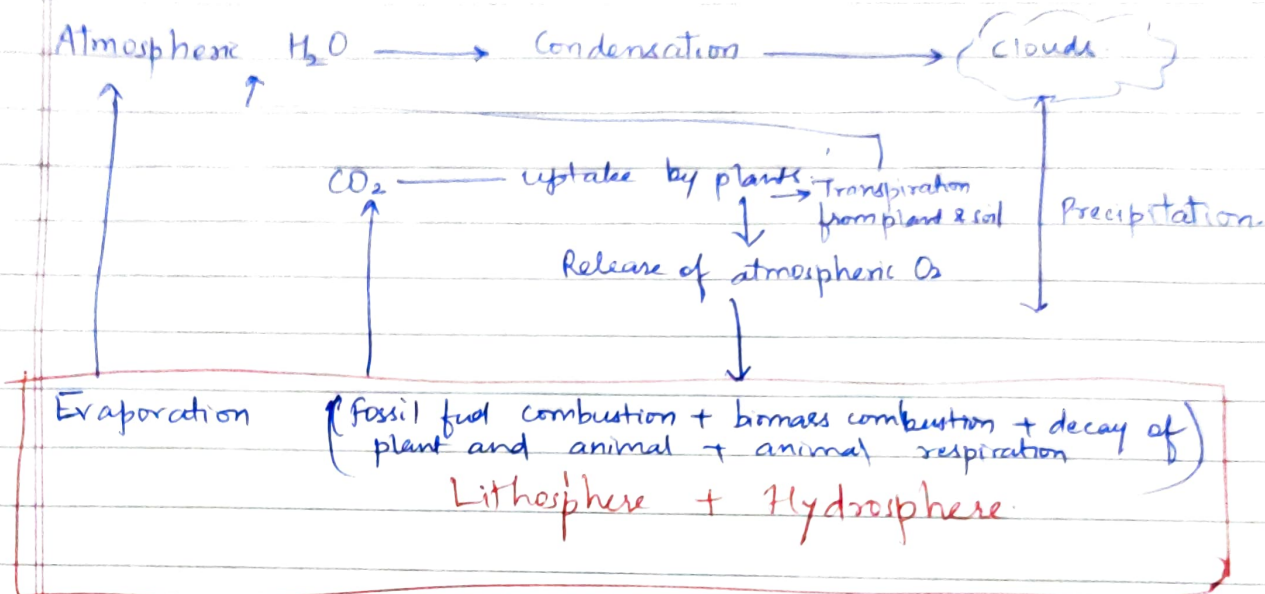 Atmospheric H₂O → Condensation → Clouds
CO₂ — uptake by plants → Transpiration
from plant & soil
Precipitation.
Release of atmospheric O₂
Evaporation
(fossil fuel combustion + biomass combustion + decay of
plant and animal + animal respiration)
Lithosphere + Hydrosphere.